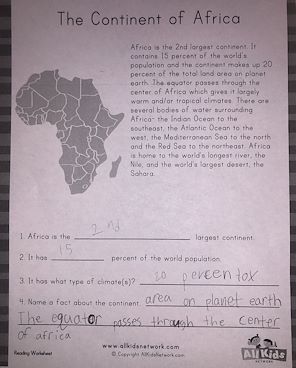 The Continent of Africa
Africa is the 2nd largest continent. It
contains 15 percent of the world's
population and the continent makes up 20
percent of the total land area on planet
earth. The equator passes through the
center of Africa which gives it largely
warm and/or tropical climates. There are
several bodies of water surrounding
Africa- the Indian Ocean to the
southeast, the Atlantic Ocean to the
west, the Mediterranean Sea to the north
and the Red Sea to the northeast. Africa
is home to the world's longest river, the
Nile, and the world's largest desert, the
Sahara.
1. Africa is the 2nd largest continent.
2. It has 15 percent of the world population.
3. It has what type of climate(s)? 20 percentox
4. Name a fact about the continent. area on planet earth
The equator passes through the center
of africa
Reading Worksheet
www.allkidsnetwork.com
© Copyright AllKidsNetwork.com
All Kids
NETWORK